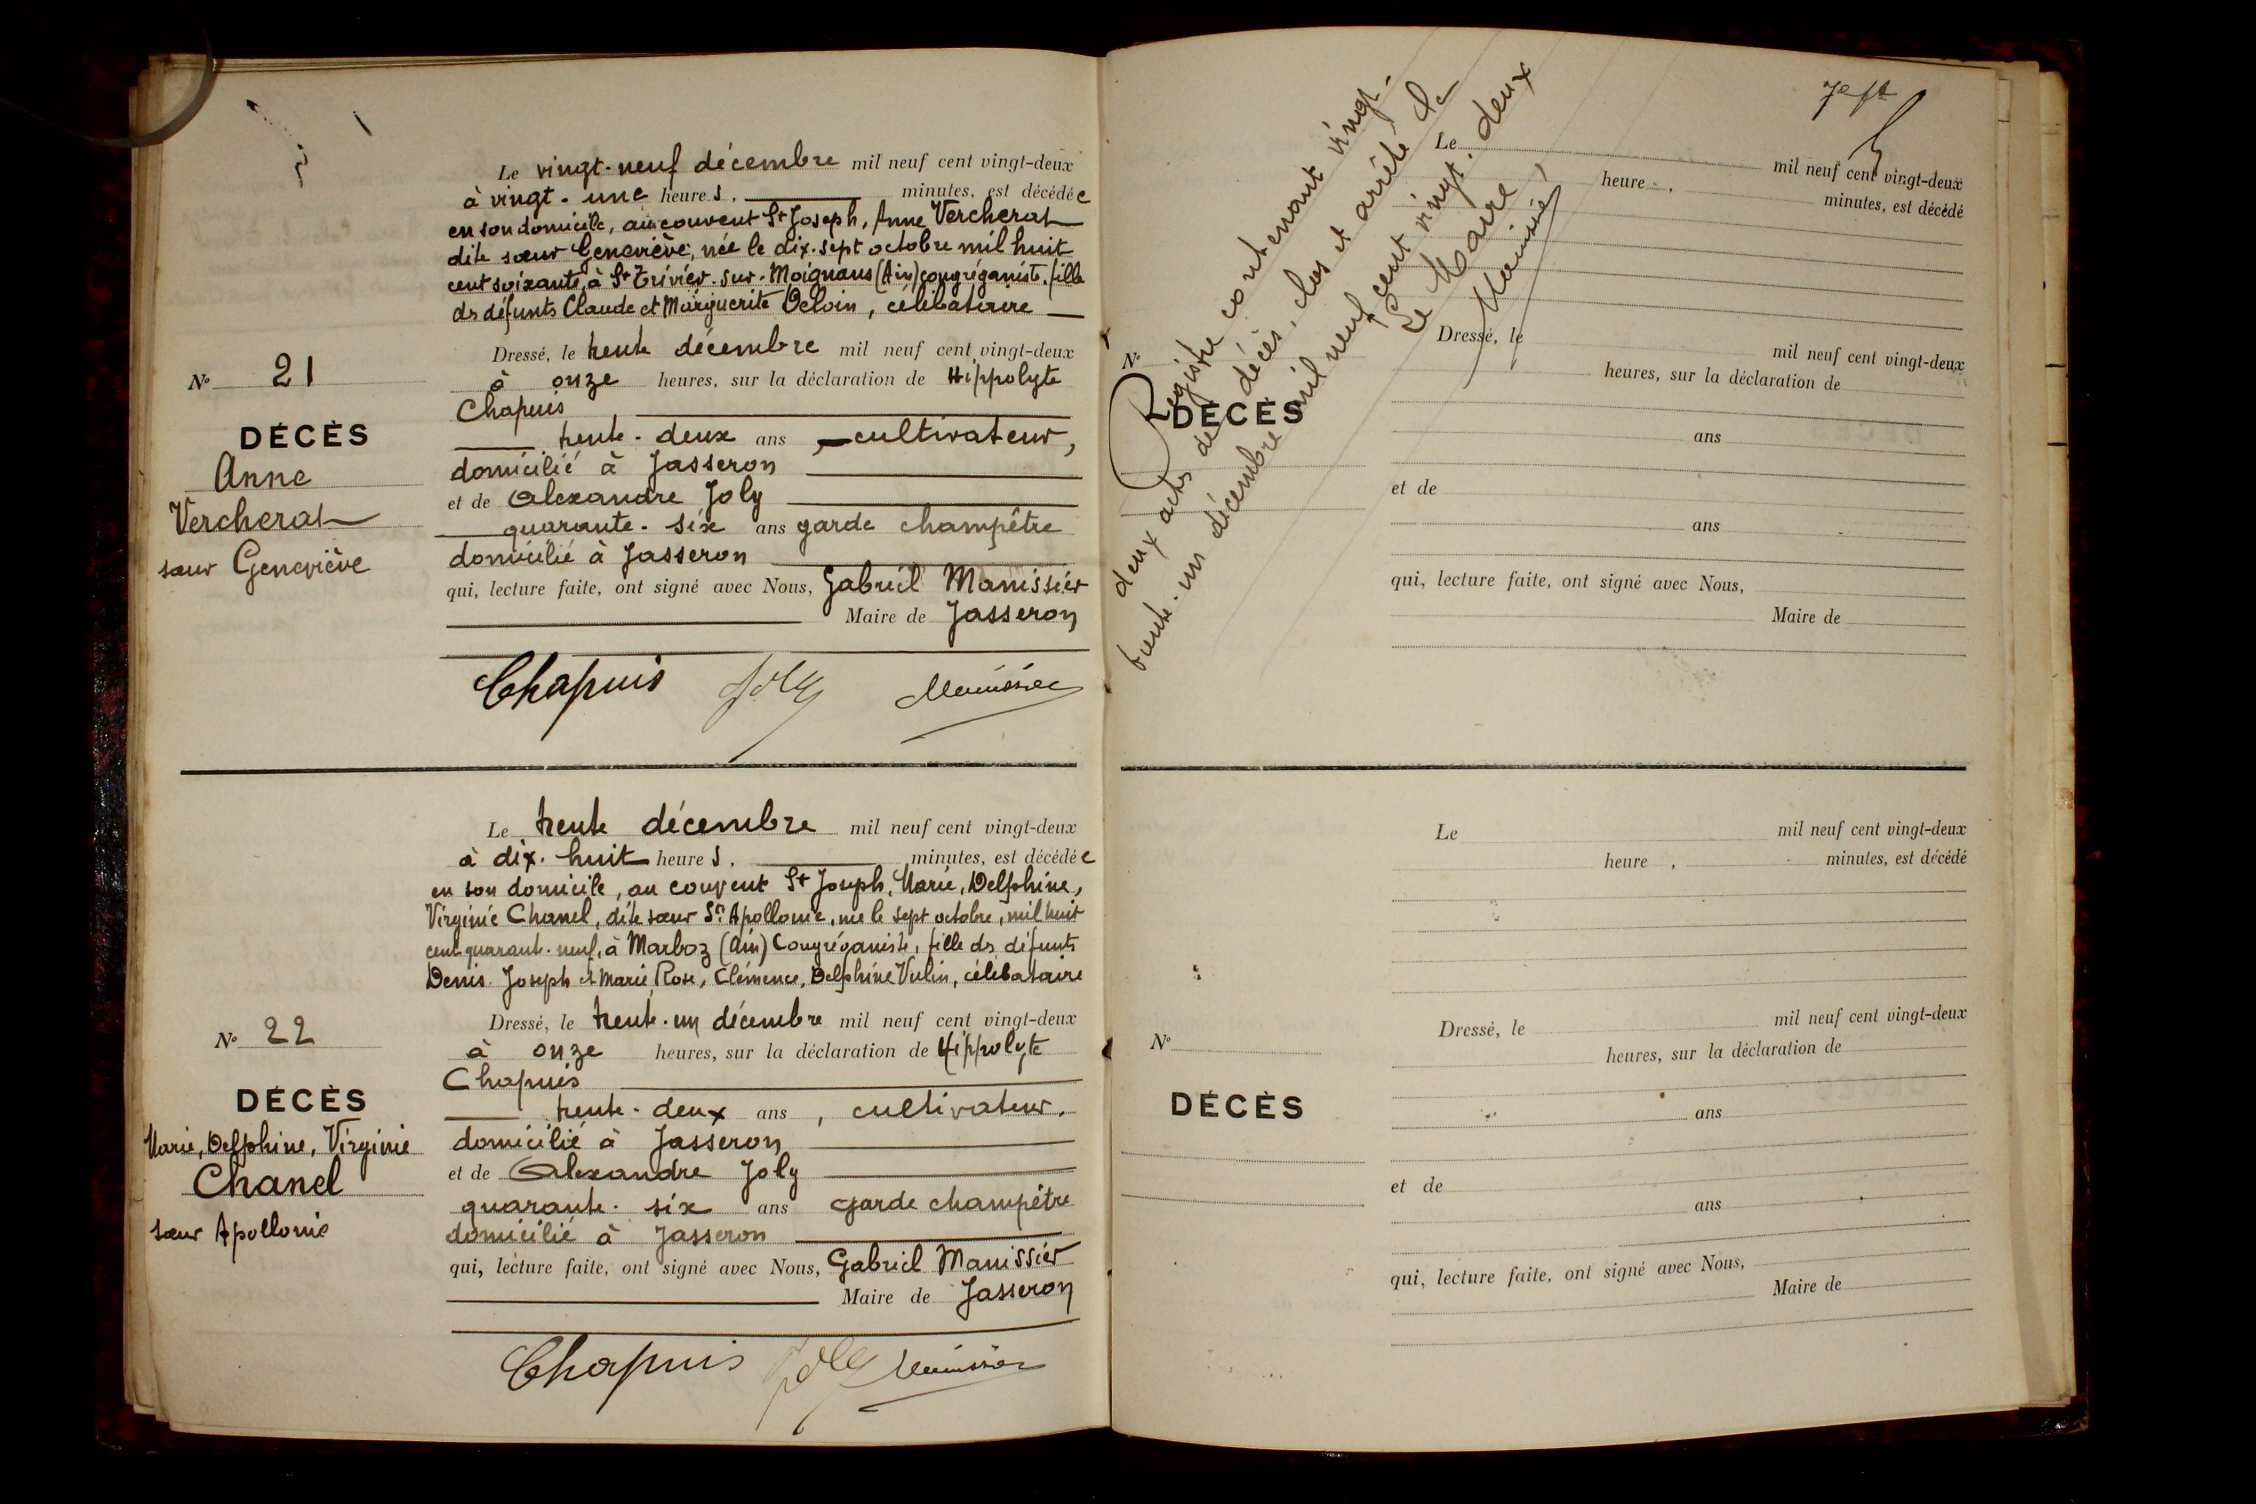 Le vingt-neuf décembre mil neuf cent vingt-deux
à vingt-une heures, minutes, est décédée
en son domicile, au couvent St Joseph, Anne Vercherat
dite sœur Geneviève, née le dix-sept octobre mil huit
cent soixante, à St Trivier-sur-Moignans (Ain) congréganiste, fille
ds défunts Claude et Marguerite Deloin, célibataire
Dressé, le trente décembre mil neuf cent vingt-deux
à onze heures, sur la déclaration de Hippolyte
Chapuis,
trente-deux ans, cultivateur,
domicilié à Jasseron
et de Alexandre Joly
quarante-six ans garde champêtre
domicilié à Jasseron
qui, lecture faite, ont signé avec Nous, Gabriel Manissier
Maire de Jasseron
No 21
DÉCÈS
Anne
Vercherat
sœur Geneviève
Chapuis Joly Manissier
Le trente décembre mil neuf cent vingt-deux
à dix-huit heures, minutes, est décédée
en son domicile, au couvent St Joseph, Marie, Delphine,
Virginie Chanel, dite sœur Sn Apollonie, née le sept octobre, mil huit
cent quarante-neuf, à Marboz (Ain) Congréganiste, fille ds défunts
Denis Joseph et Marie, Rose, Clémence, Delphine Vulin, célibataire
Dressé, le trente-un décembre mil neuf cent vingt-deux
à onze heures, sur la déclaration de Hippolyte
Chapuis
trente-deux ans, cultivateur,
domicilié à Jasseron
et de Alexandre Joly
quarante-six ans garde champêtre
domicilié à Jasseron
qui, lecture faite, ont signé avec Nous, Gabriel Manissier
Maire de Jasseron
No 22
DÉCÈS
Marie, Delphine, Virginie
Chanel
sœur Apollonie
Chapuis Joly Manissier
Registre contenant vingt-
deux actes de décès, clos et arrêté le
trente-un décembre mil neuf cent vingt-deux
Le Maire,
Manissier
Le mil neuf cent vingt-deux
heure, minutes, est décédé
Dressé, le mil neuf cent vingt-deux
heures, sur la déclaration de
No
DÉCÈS
ans
et de
ans
qui, lecture faite, ont signé avec Nous,
Maire de
Le mil neuf cent vingt-deux
heure, minutes, est décédé
Dressé, le mil neuf cent vingt-deux
heures, sur la déclaration de
No
DÉCÈS
ans
et de
ans
qui, lecture faite, ont signé avec Nous,
Maire de